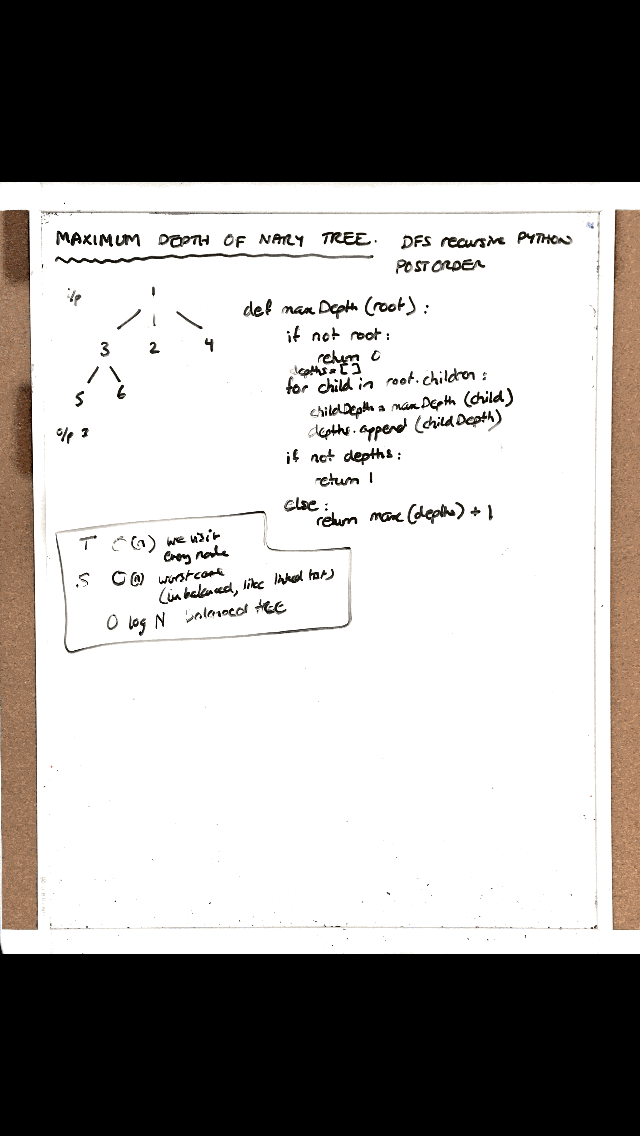 MAXIMUM DEPTH OF NARY TREE. DFS recursive PYTHON
POSTORDER
i/p
1
3 2 4
5 6
o/p 3
def maxDepth (root) :
if not root :
return 0
depths = [ ]
for child in root.children :
childDepth = maxDepth (child)
depths.append (childDepth)
if not depths :
return 1
else :
return max (depths) + 1
T O(n) we visit
every node
S O(n) worst case
(unbalanced, like linked list)
O log N balanced tree